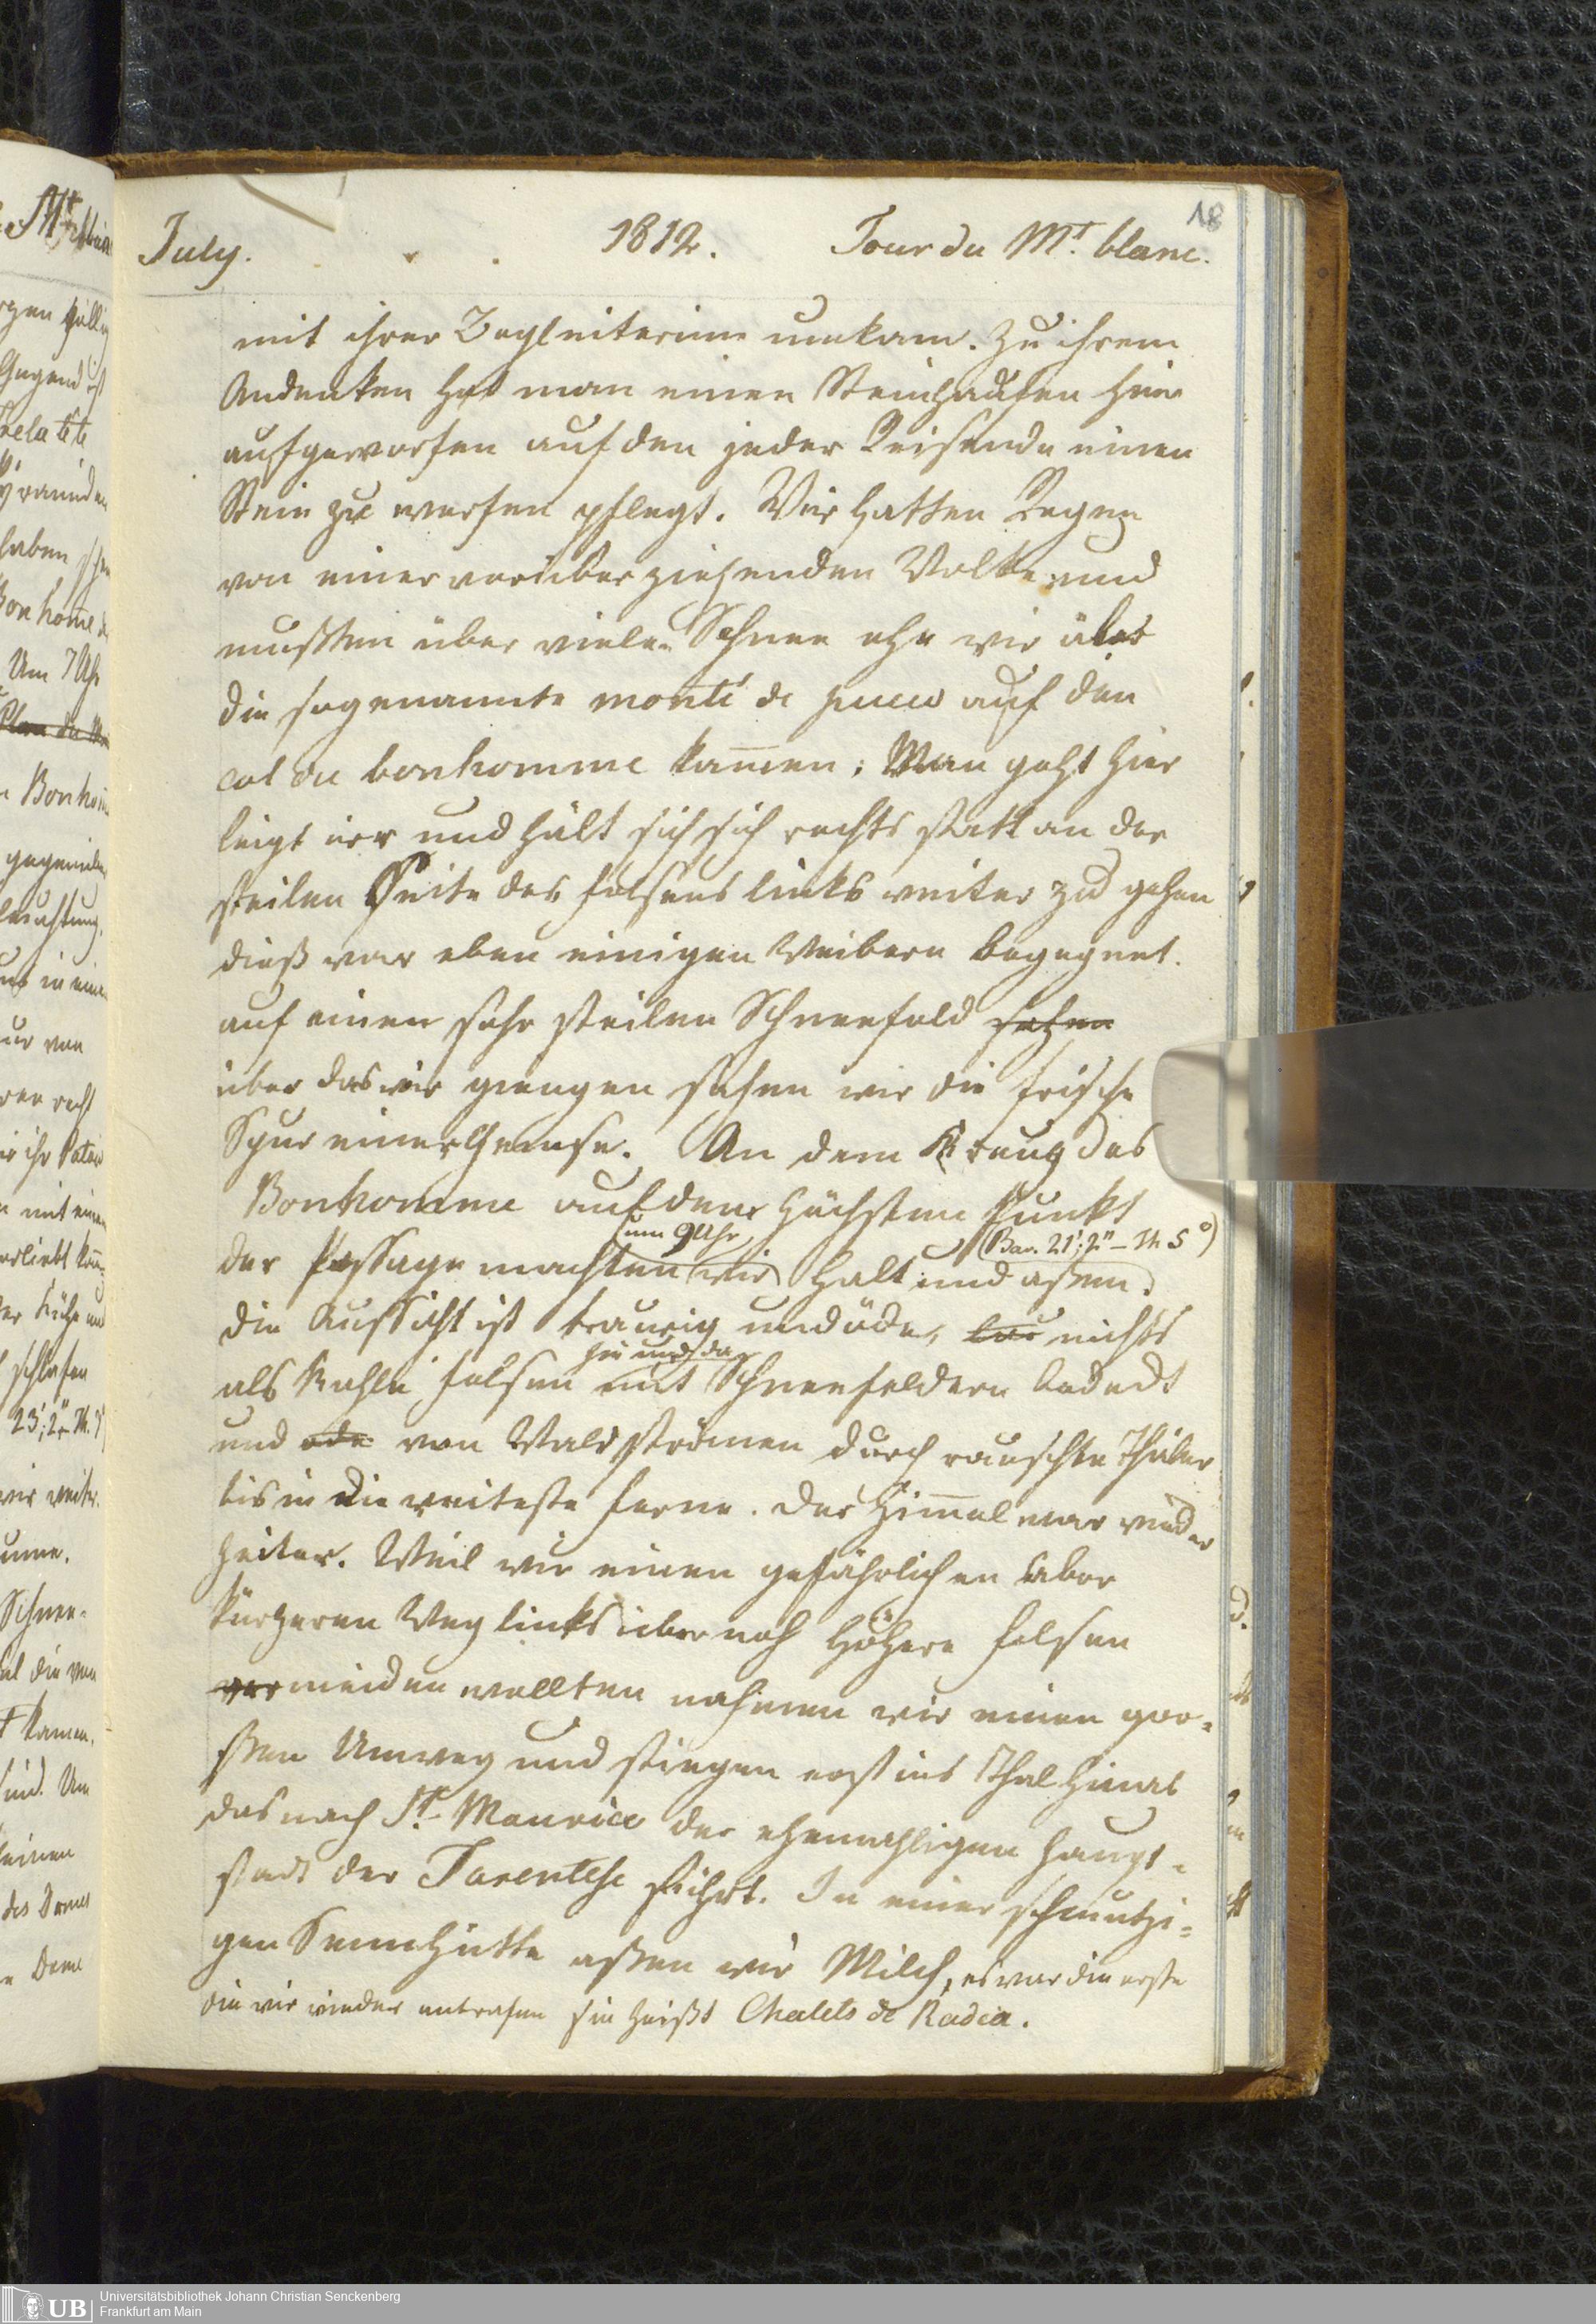 18
July. 1812. Tour du Mt. blanc.
mit ihrer Begleiterinn umkam. Zu ihrem
Andenken hat man einen Steinhaufen hier
aufgeworfen auf den jeder Reisende einen
Stein zu werfen pflegt. Wir hatten Regen
von einer vorüber ziehenden Wolke und
mußten über vielen Schnee ehe wir über
die sogenannte monté de auf den
col du bonhomme kam̄en: Man geht hier
leigt irr und hält sich sich rechts statt an der
steilen Seite des Felsens links weiter zu gehen
dieß war eben einigen Weibern begegnet.
auf einen sehr steilen Schneefeld sahen
über das wir giengen sahen wir die frische
Spur einer Gemse. An dem Kreuz des
Bonhomme auf dem höchsten Punkt
(um 9 Uhr) (Bar. 21':2" – Th 5°)
der Passage machten wir Halt und aßen.
Die Aussicht ist traurig und öde, nichts
hie und da
als kahle Felsen mit Schneefeldern bedeckt
und ode von Waldströmen durch rauschte Thäler
bis in die weiteste Ferne. Der Him̄el war wieder
heiter. Weil wir einen gefährlichen aber
kürzeren Weg links über noch höhere Felsen
vermeiden wollten nahmen wir einen gro-
ßen Umweg und stiegen erst ins Thal hinab
das nach St. Maurice der ehemahligen Haupt-
stadt der Tarentese führt. In einer schmutzi-
gen Sennhütte aßen wir Milch, es war die erste
die wir wieder antrafen sie heißt Chalets de Radea.
UB
Universitätsbibliothek Johann Christian Senckenberg
Frankfurt am Main